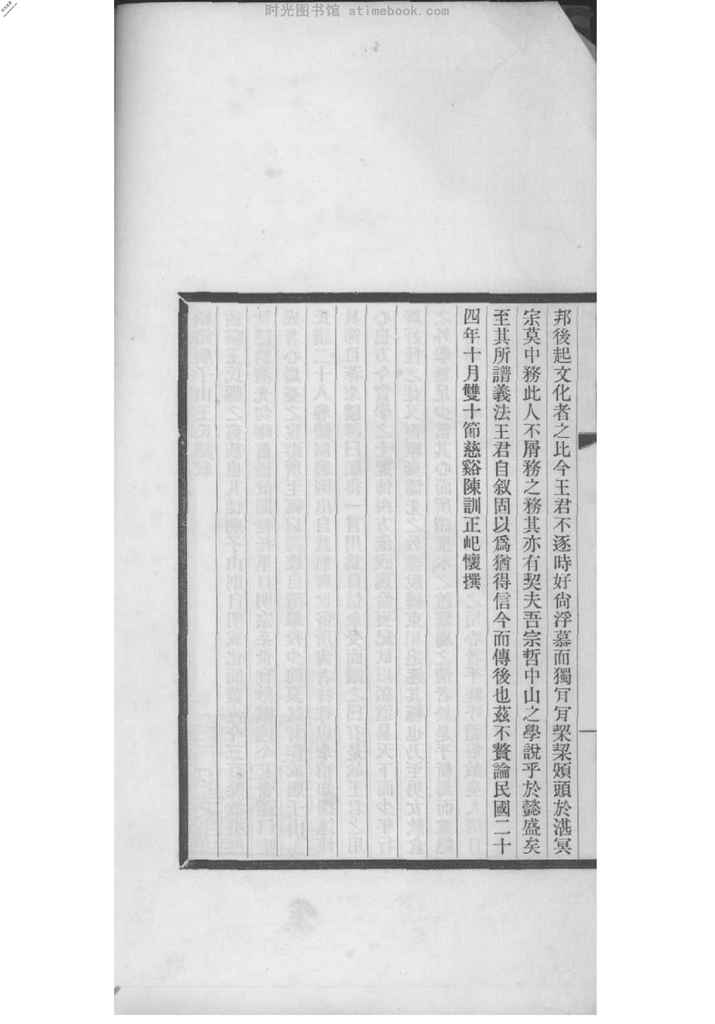 时光图书馆 atimebook.com
邦後起文化者之比今王君不逐時好尙浮慕而獨㝉㝉栔栔頫頭於湛冥
宗莫中務此人不屑務之務其亦有契夫吾宗哲中山之學說乎於懿盛矣
至其所譜義法王君自叙固以爲猶得信今而傳後也茲不贅論民國二十
四年十月雙十節慈谿陳訓正屺懷撰